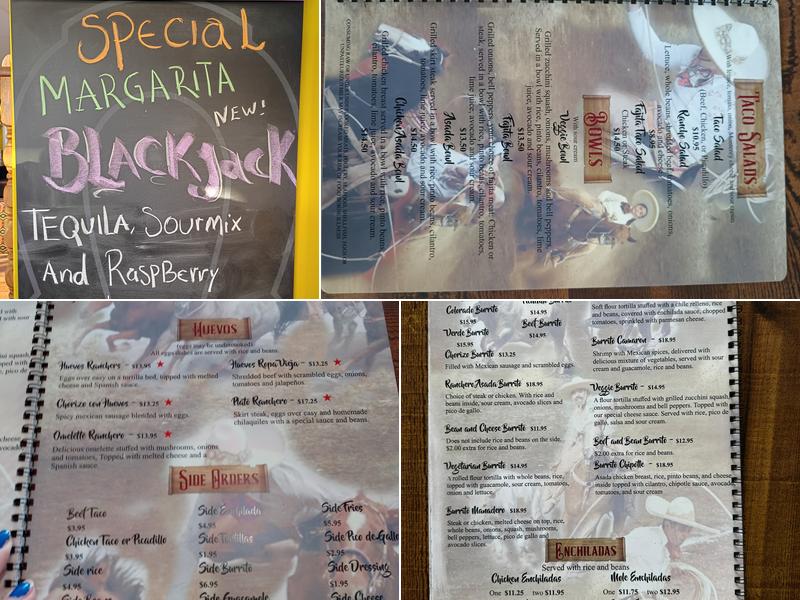 SPECIAL
MARGARITA
NEW!
BLACKJACK
TEQUILA, SOURMIX
AND RASPBERRY
TACO SALADS
Taco Salad
(Beef, Chicken, or Picadillo)
$10.95
Ranch Salad
$8.95
Lettuce, whole beans, tomatoes, onions,
Fajita Taco Salad
Chicken or Steak
BOWLS
With sour cream
Veggie Bowl
Grilled zucchini squash, onions, mushrooms and bell peppers.
Served in a bowl with rice, pinto beans, cilantro, tomatoes, lime
juice, avocado and sour cream.
Fajita Bowl
$13.50
Grilled onions, bell peppers, your choice of meat: Chicken or
steak, served in a bowl with rice, pinto beans, cilantro, tomatoes,
lime juice, avocado and sour cream.
Asada Bowl
$13.50
Grilled skirt steak served in a bowl with rice, pinto beans, cilantro,
tomatoes, lime juice, avocado and sour cream.
Chicken Asada Bowl
$14.50
Grilled chicken breast served in a bowl with rice, pinto beans,
cilantro, tomatoes, lime juice, avocado and sour cream.
HUEVOS
(eggs may be undercooked)
All eggs dishes are served with rice and beans.
Huevos Rancheros ~ $13.95
Eggs over easy on a tortilla bed, topped with melted
cheese and Spanish sauce.
Chorizo con Huevos ~ $13.25
Spicy mexican sausage blended with eggs.
Omelette Ranchero ~ $13.95
Delicious omelette stuffed with mushrooms, onions
and tomatoes, Topped with melted cheese and a
Spanish sauce.
Huevos Ropa Vieja ~ $13.25
Shredded beef with scrambled eggs, onions,
tomatoes and jalapeños.
Plato Ranchero ~ $17.25
Skirt steak, eggs over easy and homemade
chilaquiles with a special sauce and beans.
SIDE ORDERS
Beef Taco
$3.95
Chicken Taco or Picadillo
$3.95
Side rice
$4.95
Side Enchilada
$4.95
Side Tortillas
$1.95
Side Burrito
$6.95
Side Guacamole
Side Fries
$5.95
Side Pico de Gallo
$2.95
Side Dressing
$1.95
Side Cheese
Colorado Burrito
$15.95
Verde Burrito
$15.95
Chorizo Burrito $13.25
Filled with Mexican sausage and scrambled eggs.
Ranchero Asada Burrito $18.95
Choice of steak or chicken. With rice and
beans inside, sour cream, avocado slices and
pico de gallo.
Bean and Cheese Burrito $11.95
Does not include rice and beans on the side.
$2.00 extra for rice and beans.
Vegetarian Burrito $14.95
A rolled flour tortilla with whole beans, rice,
topped with guacamole, sour cream, tomatoes,
onion and lettuce.
Burrito Manadero $18.95
Steak or chicken, melted cheese on top, rice,
whole beans, onions, squash, mushrooms,
bell peppers, lettuce, pico de gallo and
avocado slices.
$14.95
Beef Burrito
$14.95
Soft flour tortilla stuffed with a chile relleno, rice
and beans, covered with enchilada sauce, chopped
tomatoes, sprinkled with parmesan cheese.
Burrito Camaron ~ $18.95
Shrimp with Mexican spices, delivered with
delicious mixture of vegetables, served with sour
cream and guacamole, rice and beans.
Veggie Burrito ~ $14.95
A flour tortilla stuffed with grilled zucchini squash,
onions, mushrooms and bell peppers. Topped with
our special cheese sauce. Served with rice, pico de
gallo, salsa and sour cream.
Beef and Bean Burrito ~ $12.95
$2.00 extra for rice and beans.
Burrito Chipotle ~ $18.95
Asada chicken breast, rice, pinto beans, and cheese
inside topped with cilantro, chipotle sauce, avocado,
tomatoes, and sour cream
ENCHILADAS
Served with rice and beans
Chicken Enchiladas
One $11.25 two $11.95
Mole Enchiladas
One $11.75 two $12.95